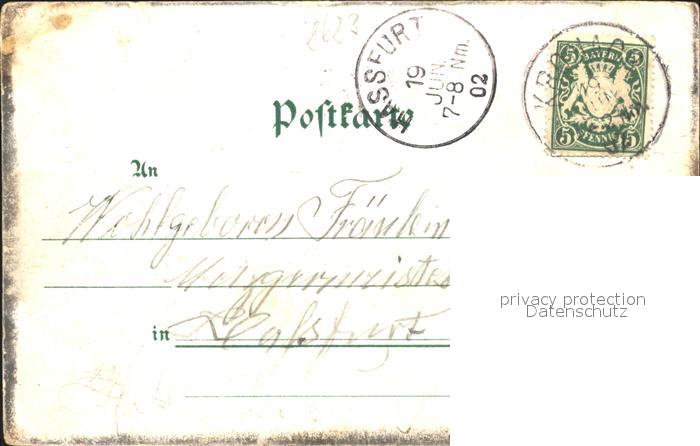 8623
HASSFURT
19
JUN.
7-8 Nm.
02
BAYERN
5 5
5 5
PFENNIG
Postkarte
An
Wohlgeboren Fräulein
Metzgermeisters
in Haßfurt
privacy protection
Datenschutz